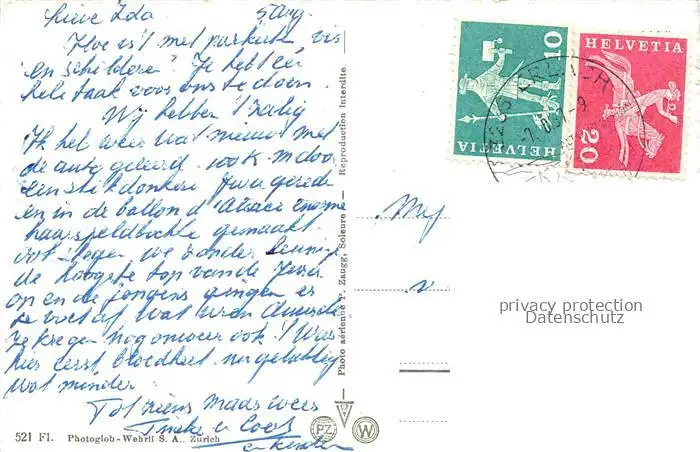 Lieve Ida 5 Aug.
Hoe is 't met parkiet, vis
en schilderen? Je hebt een
hele taak voor ons te doen.
Wij hebben 't zalig
Ik heb weer wat nieuws met
de auto geleerd. ook m door
een stikdonkere Jura gereden
en in de ballon d'Alsace enorme
haarspeldbochten gemaakt
ook slogen we zonder
de hoogste top van de Jura
op en de jongens gingen er
te voet af wat uren duurde
Ze kregen nog onweer ook! 't Was
hier eerst bloedheet nu gelukkig
wat minder.
Tot ziens maar weer
Tineke en Coos
en kinderen
Mej
v
Photo aérienne P. Zaugg, Soleure - Reproduction interdite
521 Fl. Photoglob-Wehrli S. A., Zürich
PZ W
10
HELVETIA
HELVETIA
20
privacy protection
Datenschutz